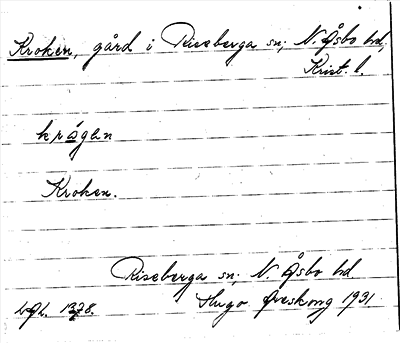 Kroken, gård i Riseberga sn; N. Åsbo hd,
Krist. l.
krågen
Kroken.
Riseberga sn; N. Åsbo hd.
Hugo Areskoug 1931.